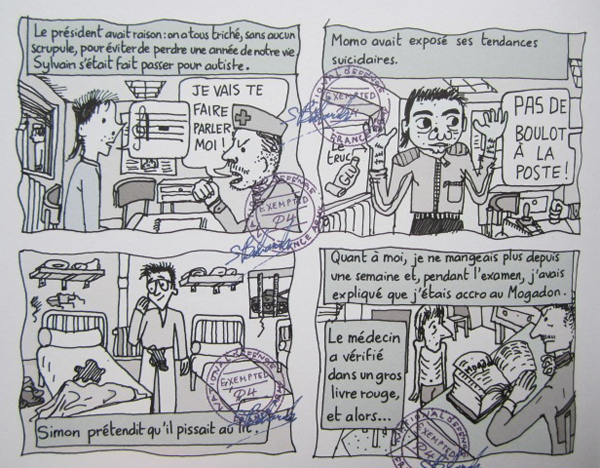 Le président avait raison : on a tous triché, sans aucun
scrupule, pour éviter de perdre une année de notre vie
Sylvain s'était fait passer pour autiste.
JE VAIS TE
FAIRE
PARLER
MOI !
Momo avait exposé ses tendances
suicidaires.
TRUC
PAS DE
BOULOT
À LA
POSTE !
NATIONAL DEFENSE
EXEMPTED
P4
FRANCE ARMY
EXEMPTED
P4
FRANCE ARMY
Simon prétendit qu'il pissait au lit.
NATIONAL DEFENSE
EXEMPTED
P4
Quant à moi, je ne mangeais plus depuis
une semaine et, pendant l'examen, j'avais
expliqué que j'étais accro au Mogadon.
Le médecin
a vérifié
dans un gros
livre rouge,
et alors...
MOGADON
NATIONAL DEFENSE
EXEMPTED
P4